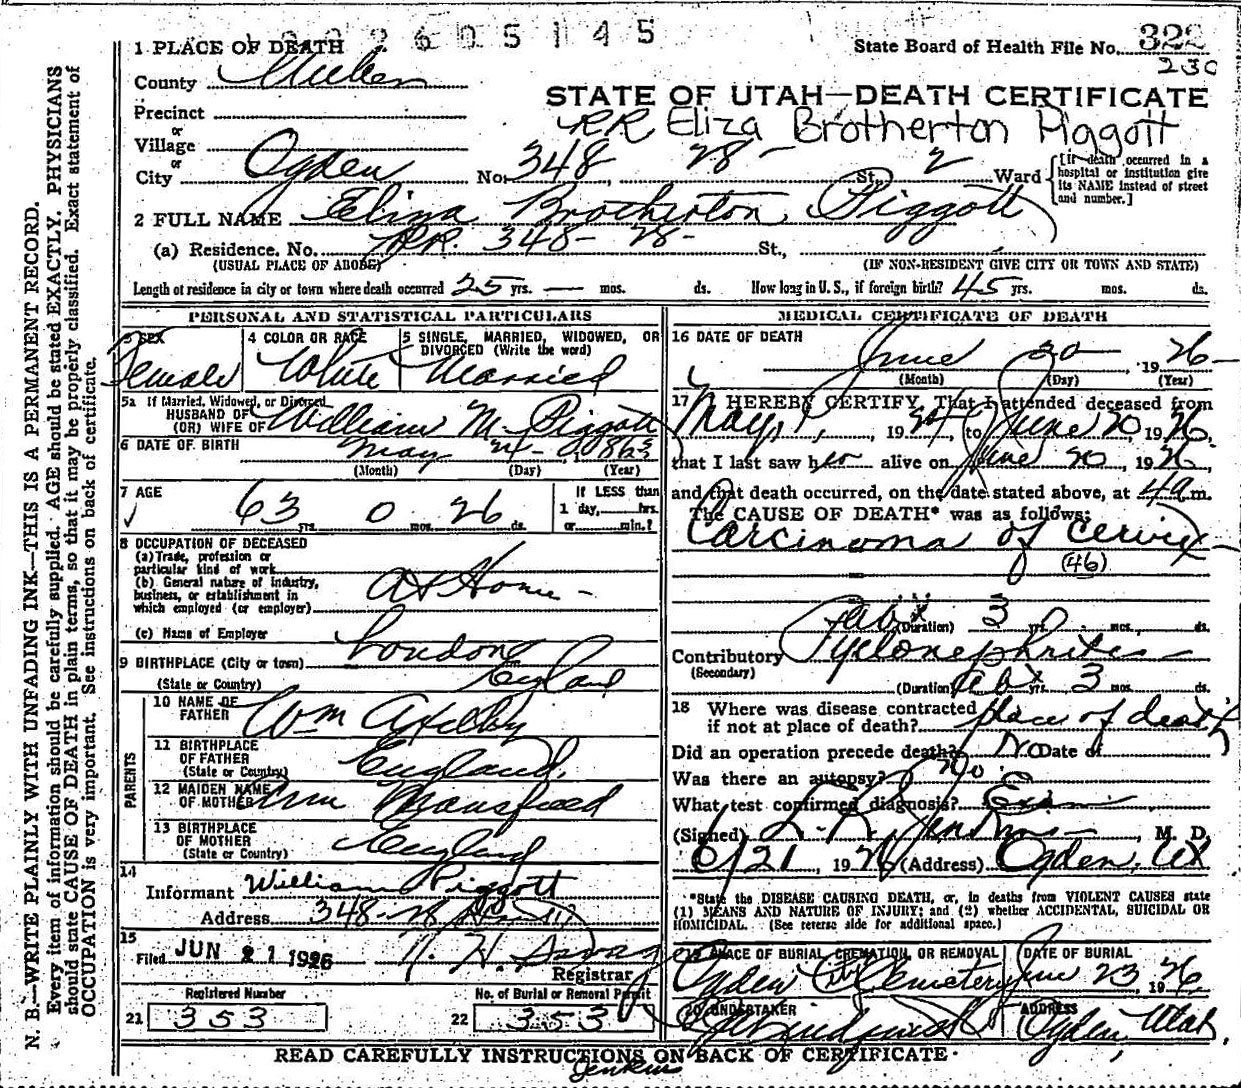 2605145
1 PLACE OF DEATH
State Board of Health File No. 322
230
County Weber
STATE OF UTAH—DEATH CERTIFICATE
Precinct
RR Eliza Brotherton Piggott
or
Village
or
City Ogden No. 348 28 - St. 2 Ward
[If death occurred in a hospital or institution give its NAME instead of street and number.]
2 FULL NAME Eliza Brotherton Piggott
(a) Residence. No. RR. 348- 28- St.,
(USUAL PLACE OF ABODE) (IF NON-RESIDENT GIVE CITY OR TOWN AND STATE)
Length of residence in city or town where death occurred 25 yrs. — mos. ds. How long in U.S., if foreign birth? 45 yrs. mos. ds.
PERSONAL AND STATISTICAL PARTICULARS
3 SEX Female
4 COLOR OR RACE White
5 SINGLE, MARRIED, WIDOWED, OR DIVORCED (Write the word) Married
5a If Married, Widowed, or Divorced
HUSBAND OF
(OR) WIFE OF William M. Piggott
6 DATE OF BIRTH May 24 - 1863
(Month) (Day) (Year)
7 AGE 63 yrs. 0 mos. 26 ds.
If LESS than
1 day, hrs.
or min.?
8 OCCUPATION OF DECEASED
(a) Trade, profession or
particular kind of work
(b) General nature of industry,
business, or establishment in
which employed (or employer) At Home -
(c) Name of Employer
9 BIRTHPLACE (City or town) London
(State or Country) England
PARENTS
10 NAME OF FATHER Wm
11 BIRTHPLACE OF FATHER (State or Country) England
12 MAIDEN NAME OF MOTHER Ann Mansfield
13 BIRTHPLACE OF MOTHER (State or Country) England
14
Informant William Piggott
Address 348-28
15
Filed JUN 21 1926
Registrar
Registered Number
21 353
No. of Burial or Removal Permit
22 353
MEDICAL CERTIFICATE OF DEATH
16 DATE OF DEATH June 20 1926
(Month) (Day) (Year)
17 I HEREBY CERTIFY, That I attended deceased from
May, 1, 1924, to June 20, 1926,
that I last saw her alive on June 20, 1926,
and that death occurred, on the date stated above, at 4 a m.
The CAUSE OF DEATH* was as follows:
Carcinoma of cervix
(46)
(Duration) 3 yrs. mos. ds.
Contributory Pyelonephritis
(Secondary)
(Duration) yrs. 3 mos. ds.
18 Where was disease contracted
if not at place of death? place of death
Did an operation precede death? No Date of
Was there an autopsy? No
What test confirmed diagnosis? Exam
(Signed) L. R. Jenkins, M. D.
6/21, 1926 (Address) Ogden, Ut
*State the DISEASE CAUSING DEATH, or, in deaths from VIOLENT CAUSES state
(1) MEANS AND NATURE OF INJURY; and (2) whether ACCIDENTAL, SUICIDAL OR
HOMICIDAL. (See reverse side for additional space.)
19 PLACE OF BURIAL, CREMATION, OR REMOVAL Ogden City Cemetery
DATE OF BURIAL June 23, 1926
20 UNDERTAKER
ADDRESS Ogden, Utah
READ CAREFULLY INSTRUCTIONS ON BACK OF CERTIFICATE
Jenkins
N. B.—WRITE PLAINLY WITH UNFADING INK—THIS IS A PERMANENT RECORD.
Every item of information should be carefully supplied. AGE should be stated EXACTLY. PHYSICIANS
should state CAUSE OF DEATH in plain terms, so that it may be properly classified. Exact statement of
OCCUPATION is very important. See instructions on back of certificate.